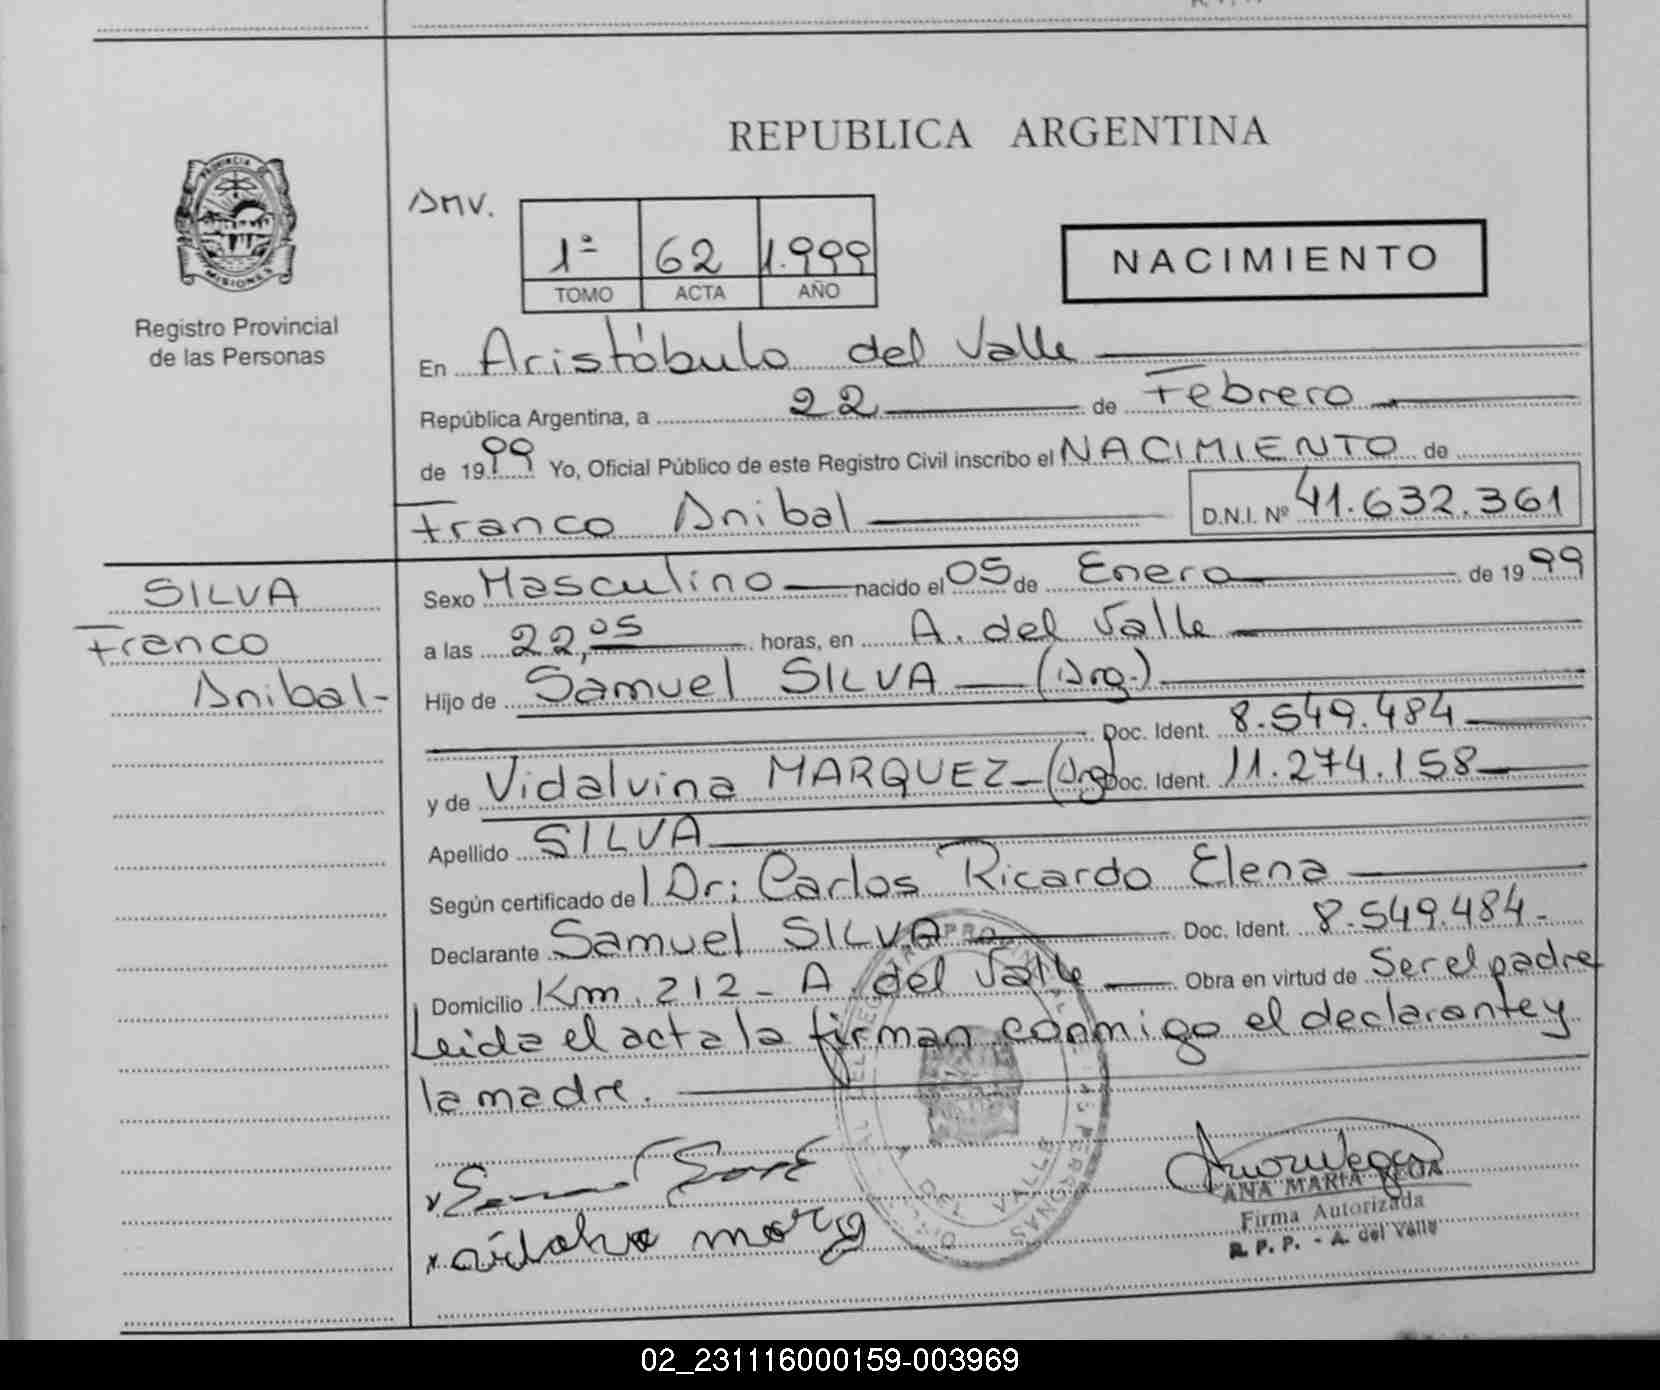 REPUBLICA ARGENTINA
PROVINCIA DE
MISIONES
Registro Provincial
de las Personas
AMV.
1ª 62 1.999
TOMO ACTA AÑO
NACIMIENTO
En Aristóbulo del Valle
República Argentina, a 22 de Febrero
de 1999 Yo, Oficial Público de este Registro Civil inscribo el NACIMIENTO de
Franco Anibal D.N.I. Nº 41.632.361
SILVA
Franco
Anibal-
Sexo Masculino nacido el 05 de Enero de 1999
a las 22,05 horas, en A. del Valle
Hijo de Samuel SILVA (Arg.)
Doc. Ident. 8.549.484
y de Vidalvina MARQUEZ (Arg) Doc. Ident. 11.274.158
Apellido SILVA
Según certificado de l Dr: Carlos Ricardo Elena
Declarante Samuel SILVA Doc. Ident. 8.549.484.-
Domicilio Km. 212 - A. del Valle Obra en virtud de Ser el padre
Leida el acta la firman conmigo el declarante y
la madre.
ANA MARIA VEGA
Firma Autorizada
R. P. P. - A. del Valle
02_231116000159-003969